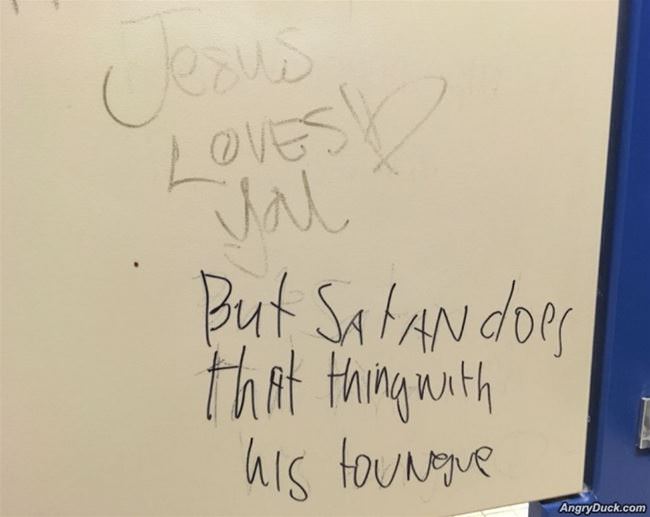 Jesus
LOVES
you
But SAtAN does
thAt thing with
his toungue
AngryDuck.com